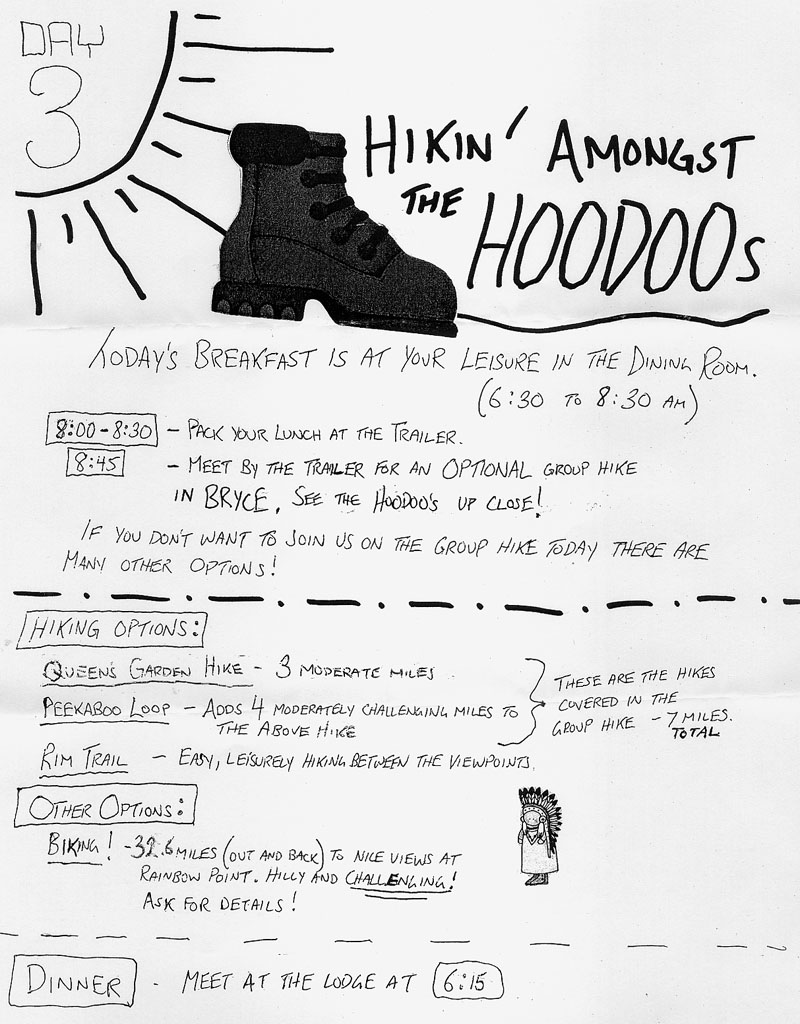 DAY
3
HIKIN' AMONGST
THE HOODOOS
TODAY'S BREAKFAST IS AT YOUR LEISURE IN THE DINING ROOM.
(6:30 TO 8:30 AM)
8:00-8:30 - PACK YOUR LUNCH AT THE TRAILER.
8:45 - MEET BY THE TRAILER FOR AN OPTIONAL GROUP HIKE
IN BRYCE, SEE THE HOODOO'S UP CLOSE!
IF YOU DON'T WANT TO JOIN US ON THE GROUP HIKE TODAY THERE ARE
MANY OTHER OPTIONS!
HIKING OPTIONS:
QUEEN'S GARDEN HIKE - 3 MODERATE MILES
PEEKABOO LOOP - ADDS 4 MODERATELY CHALLENGING MILES TO
THE ABOVE HIKE
THESE ARE THE HIKES
COVERED IN THE
GROUP HIKE - 7 MILES.
TOTAL
RIM TRAIL - EASY, LEISURELY HIKING BETWEEN THE VIEWPOINTS.
OTHER OPTIONS:
BIKING! - MILES (OUT AND BACK) TO NICE VIEWS AT
RAINBOW POINT. HILLY AND CHALLENGING!
ASK FOR DETAILS!
DINNER - MEET AT THE LODGE AT 6:15